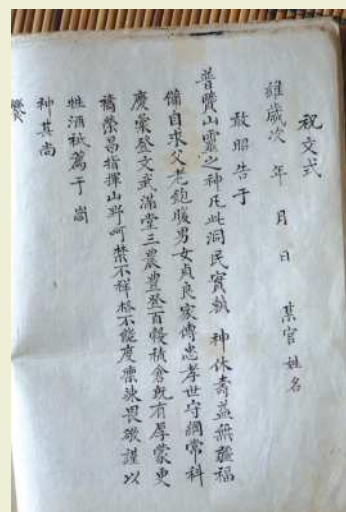 祝文式
維歲次 年 月 日 某官姓名
敢昭告于
普覽山靈之神凡此洞民實賴 神休壽益無疆福
備自求父老飽腹男女貞良家傳忠孝世守綱常科
慶彙登文武滿堂三農豊登百穀積倉既有厚蒙更
禱榮昌指揮山野呵禁不祥 不能度 畏 謹以
牲酒祗薦于 尚
神其尚
饗